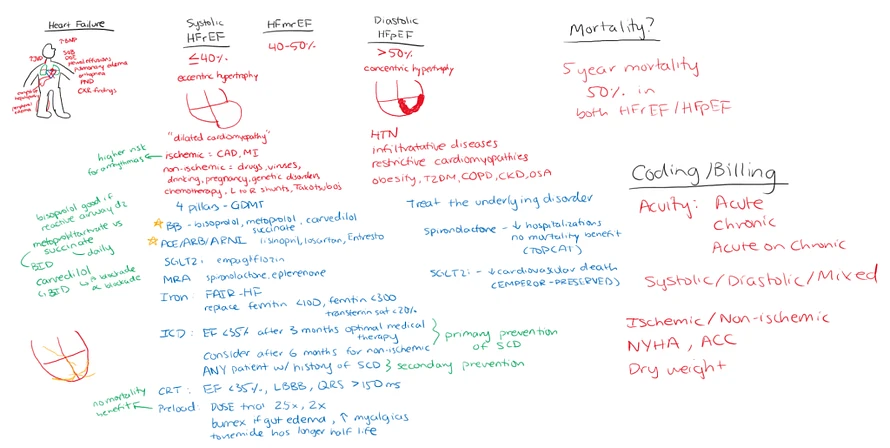 Heart Failure
↑BNP
↑JVD
SOB
DOE
pleural effusions
pulmonary edema
orthopnea
PND
CXR findings
peripheral edema
Systolic
HFrEF
≤40%
eccentric hypertrophy
"dilated cardiomyopathy"
ischemic = CAD, MI
non-ischemic = drugs, viruses,
drinking, pregnancy, genetic disorders
chemotherapy, L to R shunts, Takotsubo's
higher risk
for arrhythmias
HFmrEF
40-50%
Diastolic
HFpEF
>50%
concentric hypertrophy
HTN
infiltratative diseases
restrictive cardiomyopathies
obesity, T2DM, COPD, CKD, OSA
4 pillars - GDMT
BB - bisoprolol, metoprolol, carvedilol
succinate
ACE/ARB/ARNI lisinopril, losartan, Entresto
SGLT2i empagliflozin
MRA spironolactone, eplerenone
Iron: FAIR-HF
replace ferritin <100, ferritin <300
transferrin sat <20%
bisoprolol good if
reactive airway dz
metoprolol tartrate vs
succinate
BID daily
carvedilol
BID
β blockade
α blockade
ICD: EF <35% after 3 months optimal medical
therapy
consider after 6 months for non-ischemic
primary prevention
of SCD
ANY patient w/ history of SCD } secondary prevention
CRT: EF <35%, LBBB, QRS >150 ms
no mortality
benefit
Preload: DOSE trial 2.5x, 2x
bumex if gut edema, ↑ myalgias
torsemide has longer half life
Treat the underlying disorder
Spironolactone - ↓ hospitalizations
no mortality benefit
(TOPCAT)
SGLT2i - ↓ cardiovascular death
(EMPEROR-PRESERVED)
Mortality?
5 year mortality
50% in
both HFrEF/HFpEF
Coding/Billing
Acuity: Acute
Chronic
Acute on Chronic
Systolic/Diastolic/Mixed
Ischemic/Non-ischemic
NYHA, ACC
Dry weight